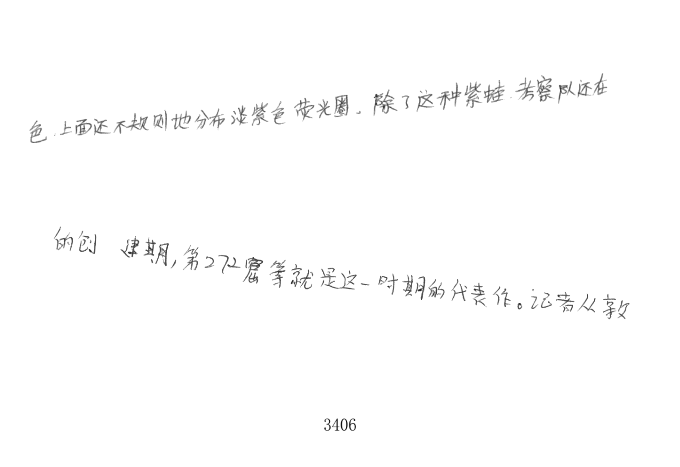 色,上面还不规则地分布淡紫色荧光圈。除了这种紫蛙,考察队还在
的创 建期,第272窟等就是这一时期的代表作。记者从敦
3406